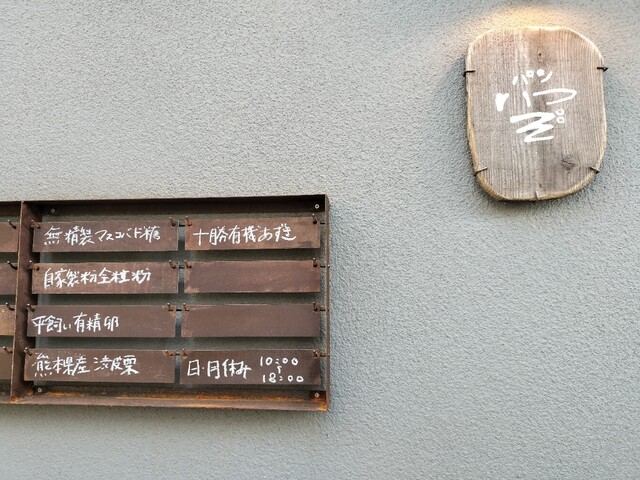 パン
無精製マスコバド糖
十勝有機あずき
自家製粉全粒粉
平飼い有精卵
熊本県産渋皮栗
日・月休み 10:00
〜
18:00